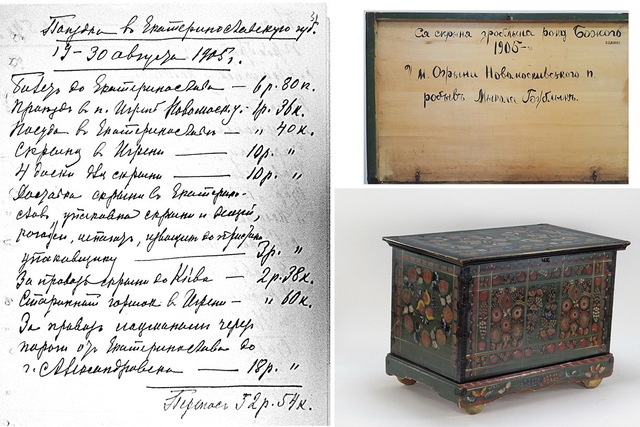 Поездка в Екатеринославскую губ.
19-30 августа 1905 г.
Билет до Екатеринослава — 6 р. 80 к.
Проезд в п. Игрень Новомоск. у. - 1 р. 36 к.
Поезда в Екатеринослав — „ 40 к.
Скрыню в Игрени — 10 р. „
4 доски для скрыни — 10 р. „
Доставка скрыни в Екатерино-
слав, упаковка скрыни и вещей,
рогожи, извощик до пристани
упаковщику — 3 р. „
За провоз скрыни до Києва — 2 р. 38 к.
Старинный горшок в Игрени — „ 60 к.
За проезд через
пороги от Екатеринослава до
г. Александровска — 18 р. „
52 р. 54 к.
Ся скрыня зроблына року Божого
1905-
м. Огрыни Новомосковського п.
робывъ Мыкола